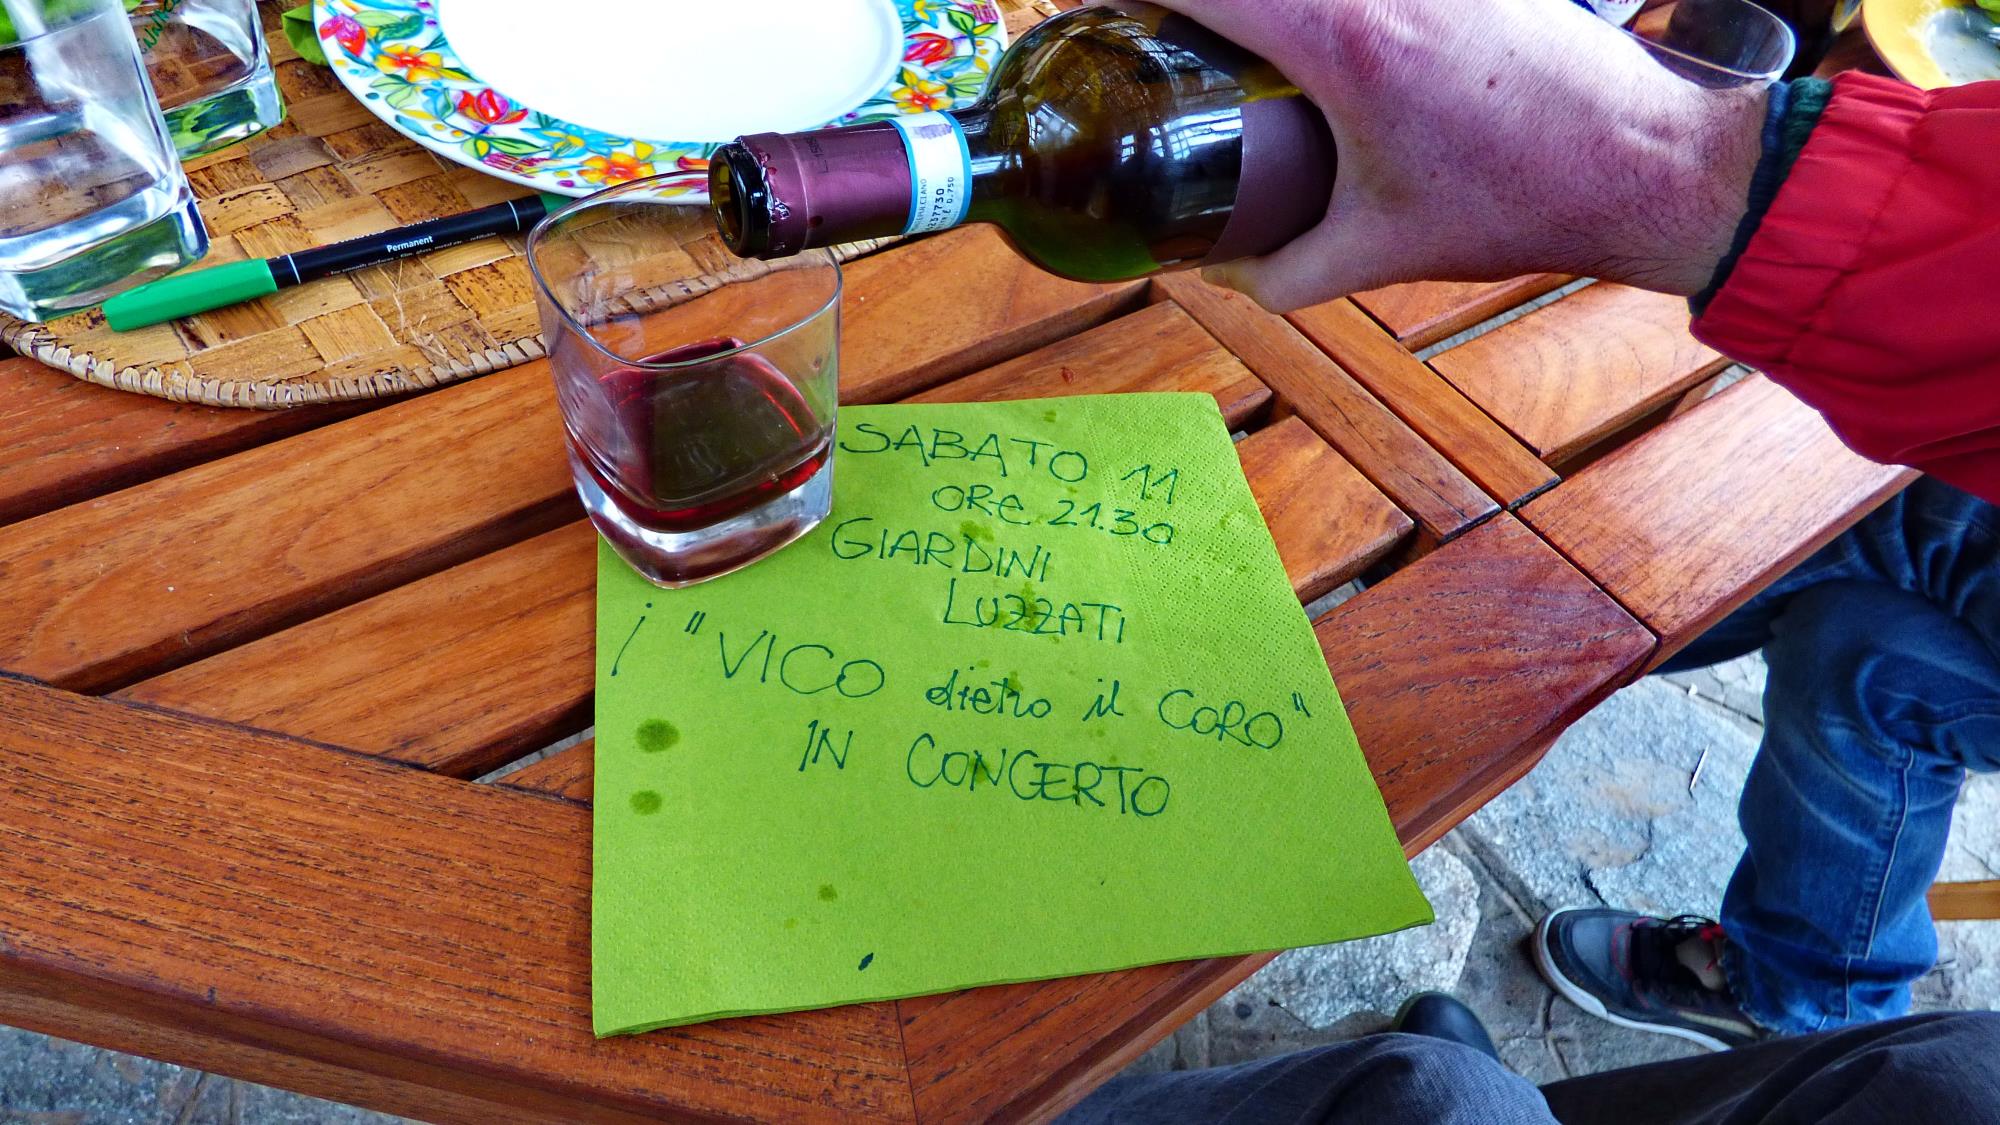 Permanent
L15095
237730
0.750
SABATO 11
ORE 21.30
GIARDINI
LUZZATI
i "VICO dietro il CORO"
IN CONCERTO